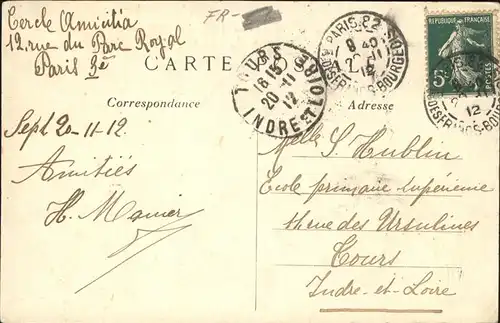 Cercle Amicitia
12, rue du Parc Royal
Paris 3e
FR-
CARTE
Correspondance
Adresse
TOURS
18 15
20-11
12
INDRE ET LOIRE
PARIS
8 40
12
DES FRANCS-BOURGEOIS
REPUBLIQUE FRANÇAISE
5c
POSTES
DES FRANCS-BOURG
12
Sept 20-11-12
Amitiés
Melle S. Hublin
Ecole primaire supérieure
rue des Ursulines
Tours
Indre-et-Loire